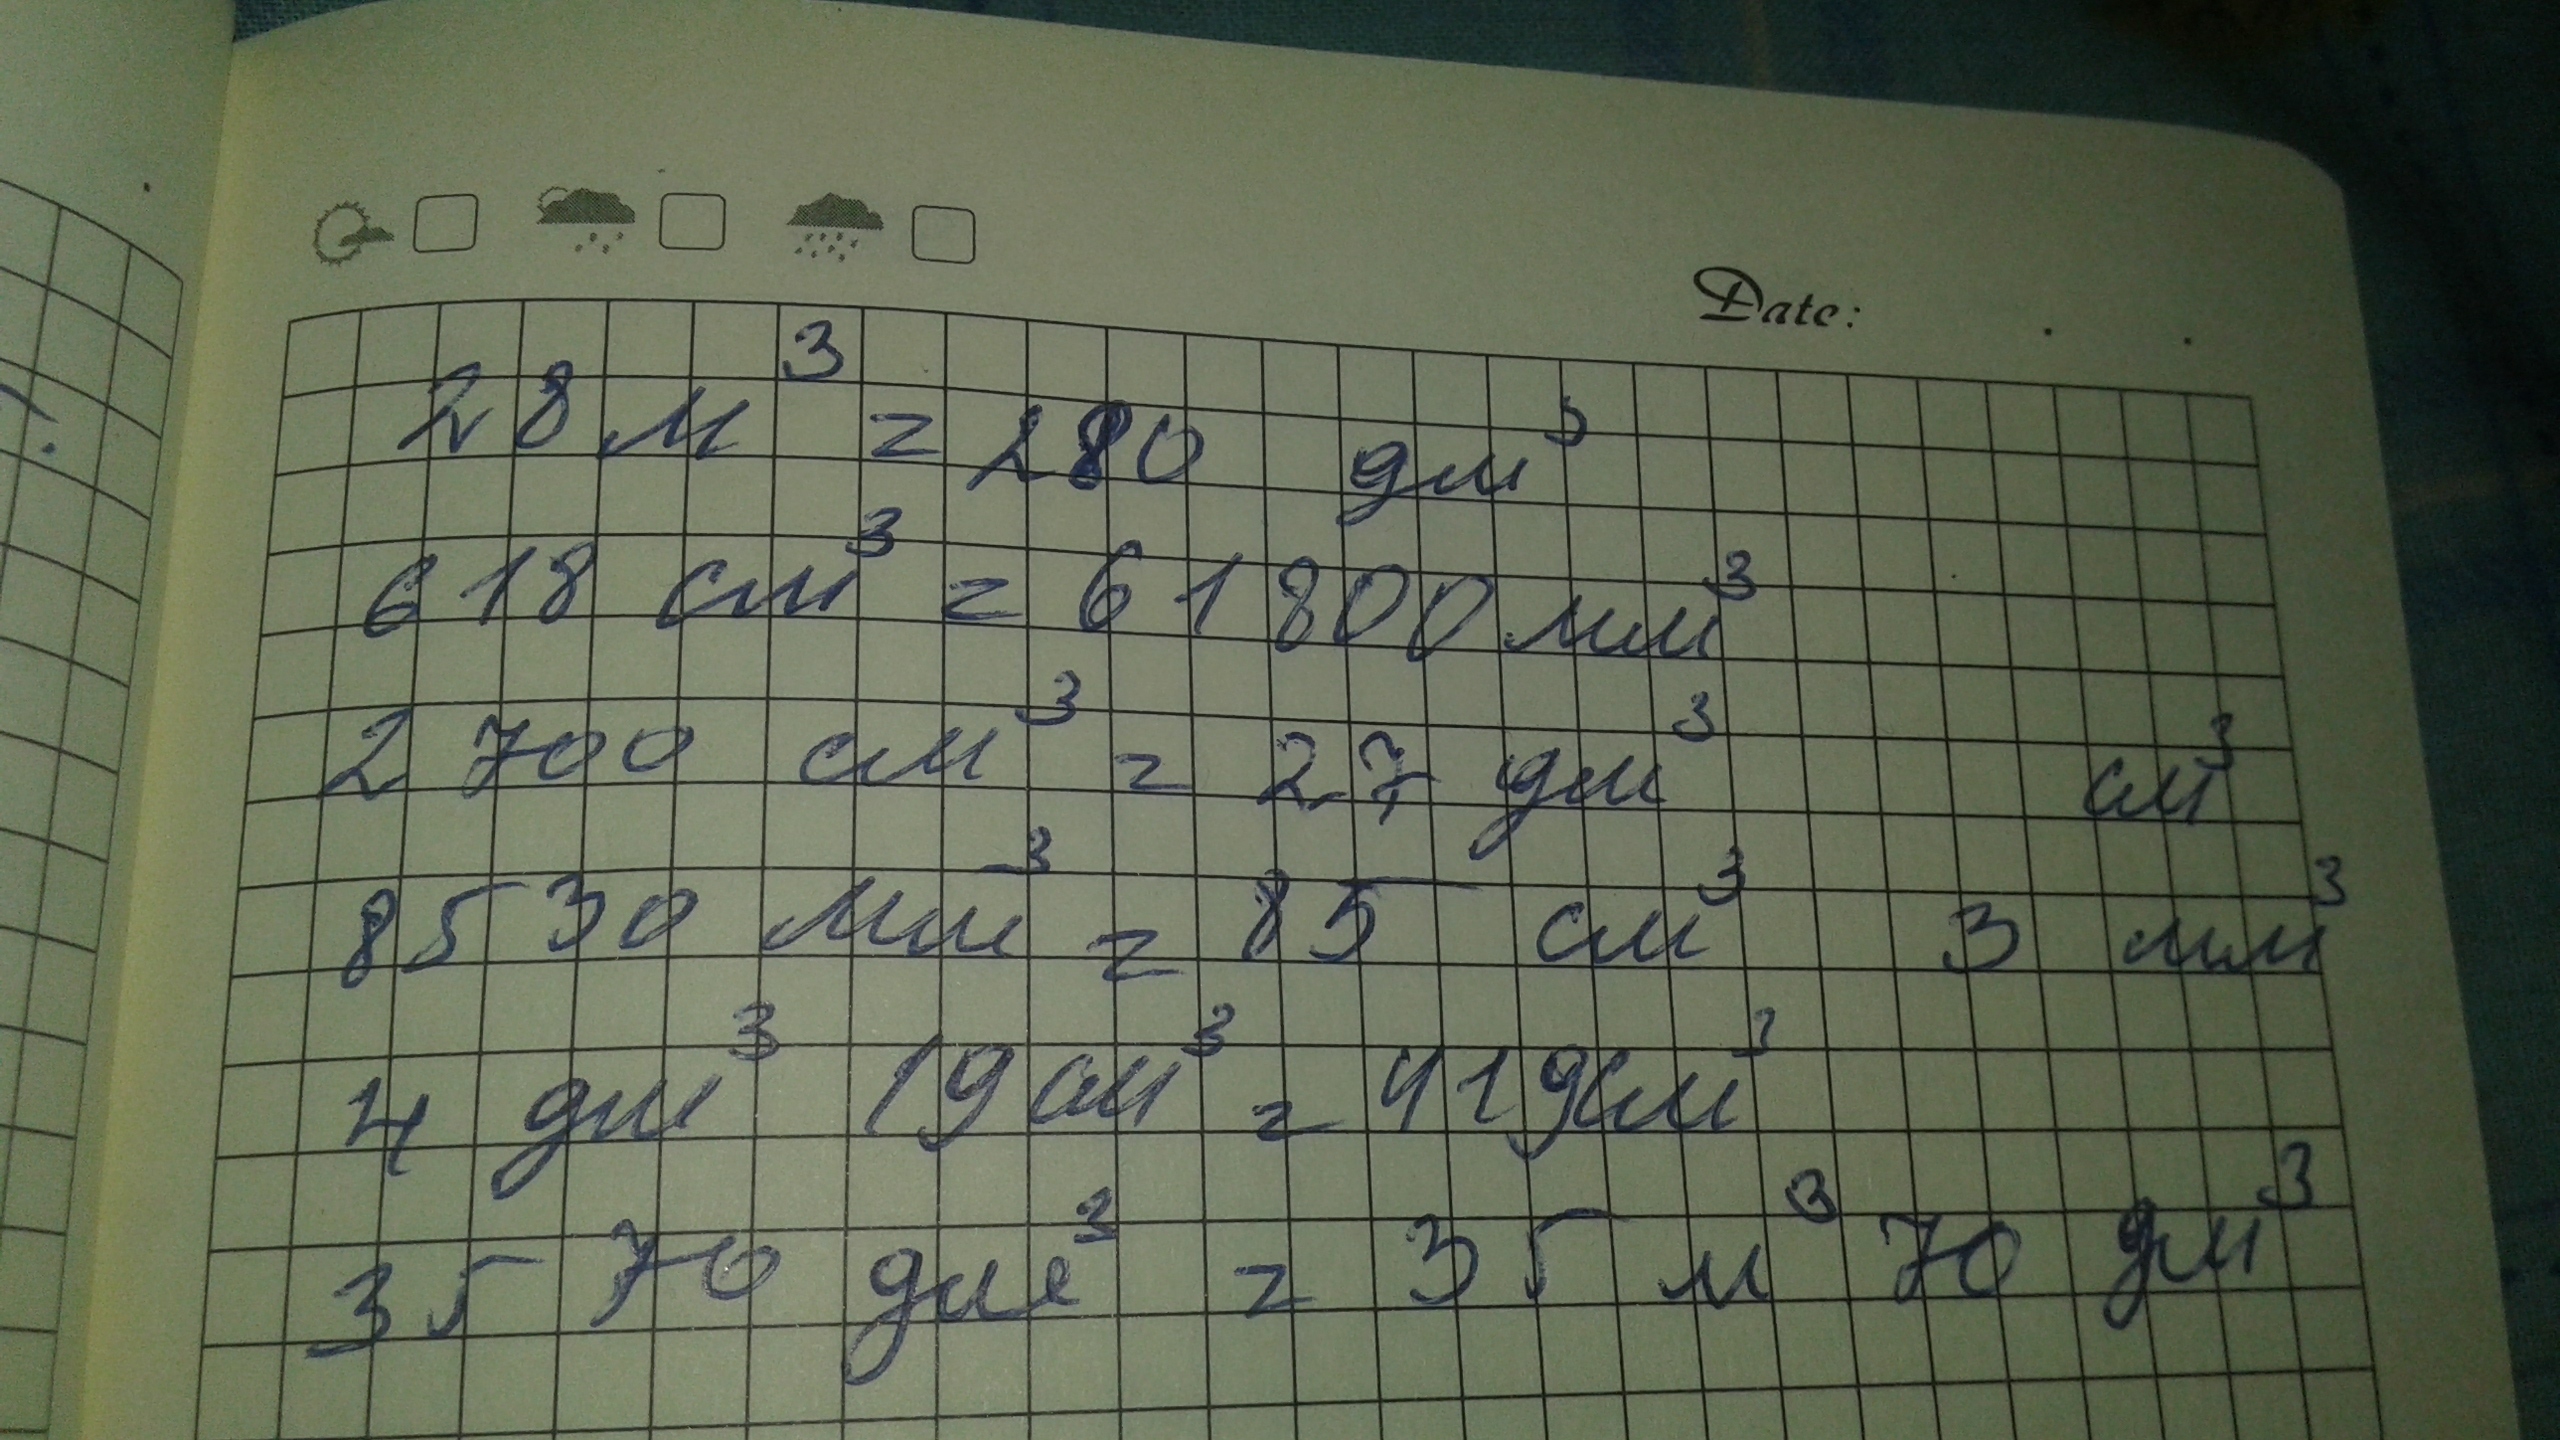 Date:
28 м³ = 280 дм³
618 см³ = 61800 мм³
2700 см³ = 27 дм³ см³
8530 мм³ = 85 см³ 3 мм³
4 дм³ 19 см³ = 419 см³
3570 дм³ = 35 м³ 70 дм³